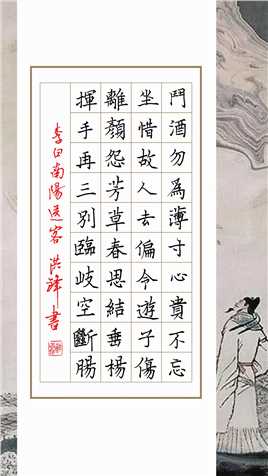 鬥酒勿為薄寸心貴不忘
坐惜故人去偏令遊子傷
離顏怨芳草春思結垂楊
揮手再三別臨岐空斷腸
李白南陽送客 洪 書